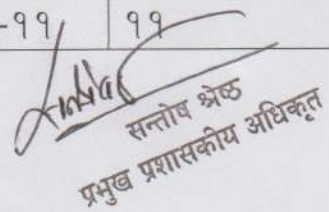 -११ ११
सन्तोष श्रेष्ठ
प्रमुख प्रशासकीय अधिकृत